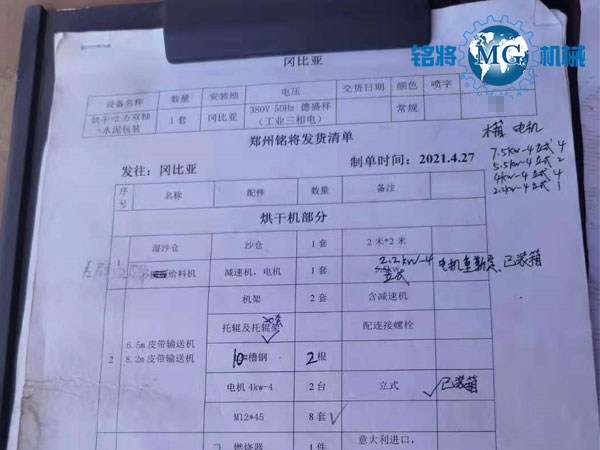 铭将 MG 机械
冈比亚
设备名称 数量 安装地 电压 交货日期 颜色 喷字
烘干+2方双轴+水泥包装 1套 冈比亚 380V 50Hz 德盛祥（工业三相电） 常规
木箱 电机
7.5kw-4 立式 4
5.5kw-4 立式 2
4kw-4 立式 4
2.2kw-4 立式 1
郑州铭将发货清单
发往：冈比亚 制单时间：2021.4.27
序号 名称 配件 数量 备注
烘干机部分
湿沙仓 沙仓 1套 2米*2米
给料机 减速机，电机 1套 2.2kw-4 立式 电机重新定，已装箱
机架 2套 含减速机
托辊及托辊架 配连接螺栓
2 6.5m 皮带输送机
8.2m 皮带输送机
10#槽钢 2根
电机 4kw-4 2台 立式 已装箱
M12*45 8套
燃烧器 1件 意大利进口，